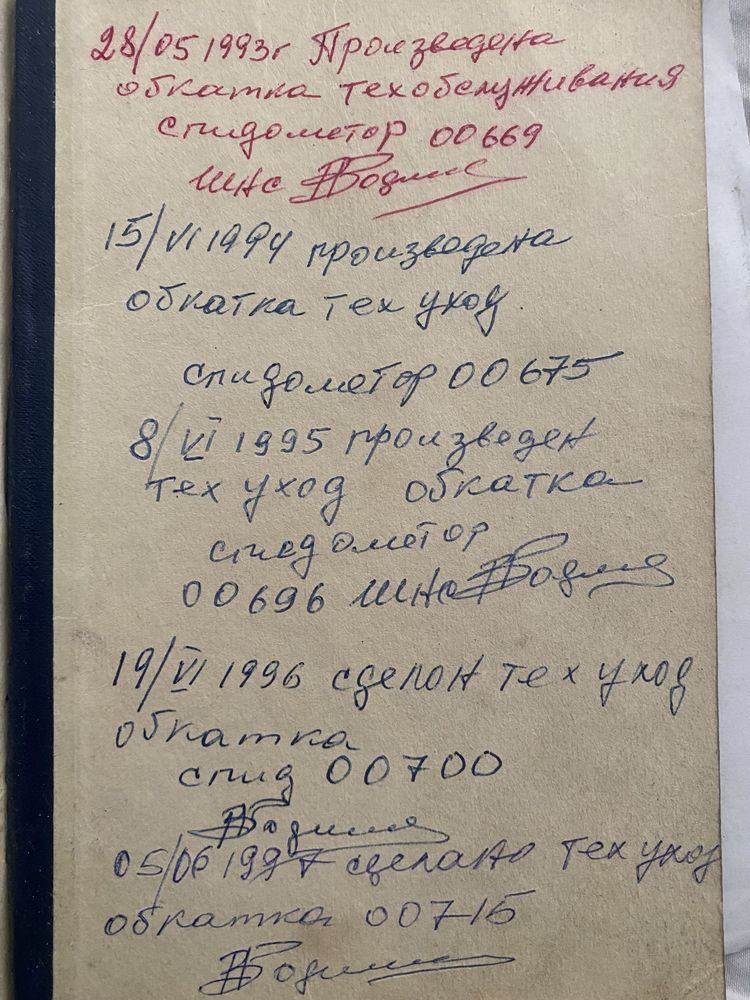 28/05 1993г Произведена
обкатка техобслуживания
спидометор 00669
ШНС
15/VI 1994 произведена
обкатка тех уход
спидометор 00675
8/VI 1995 произведен
тех уход обкатка
спидометор
00696 ШНС
19/VI 1996 сделон тех уход
обкатка
спид 00700
05/06 1997 сделано тех уход
обкатка 00715